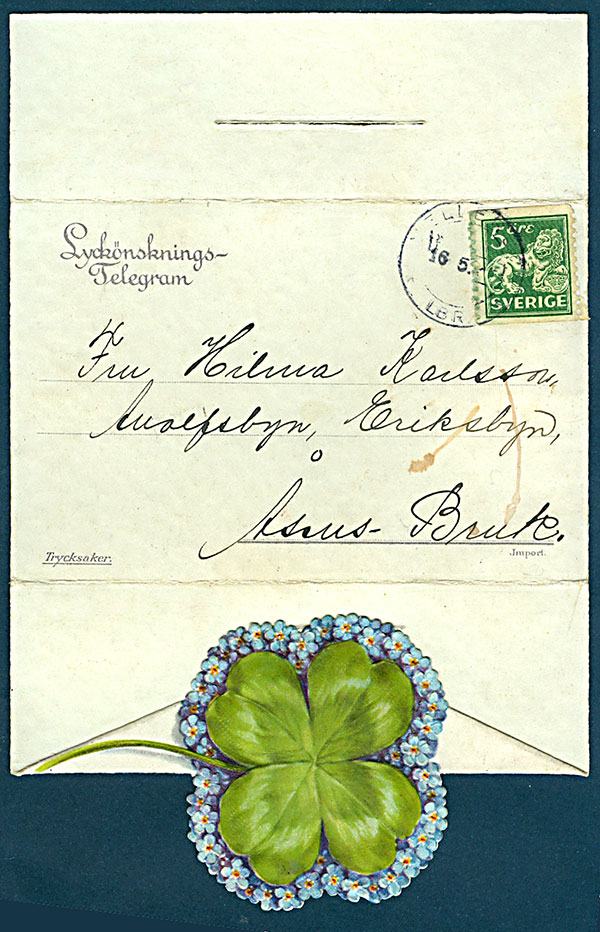 Lyckönsknings-
Telegram
16 5.
LBR
5 öre
SVERIGE
Fru Hilma Karlsson,
Anolfsbyn, Eriksbyn,
Åsens- Bruk.
Trycksaker.
Import.